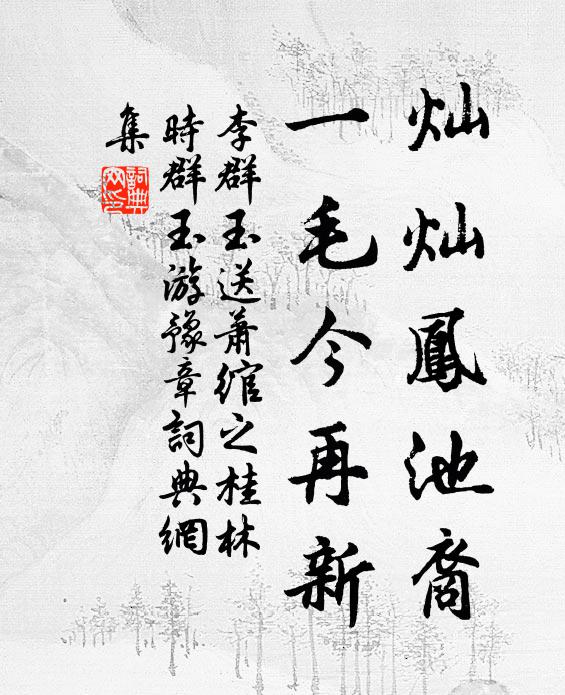 灿灿鳳池裔
一毛今再新
李群玉送萧綰之桂林
時群玉游豫章詞典網
集
詞典
网印